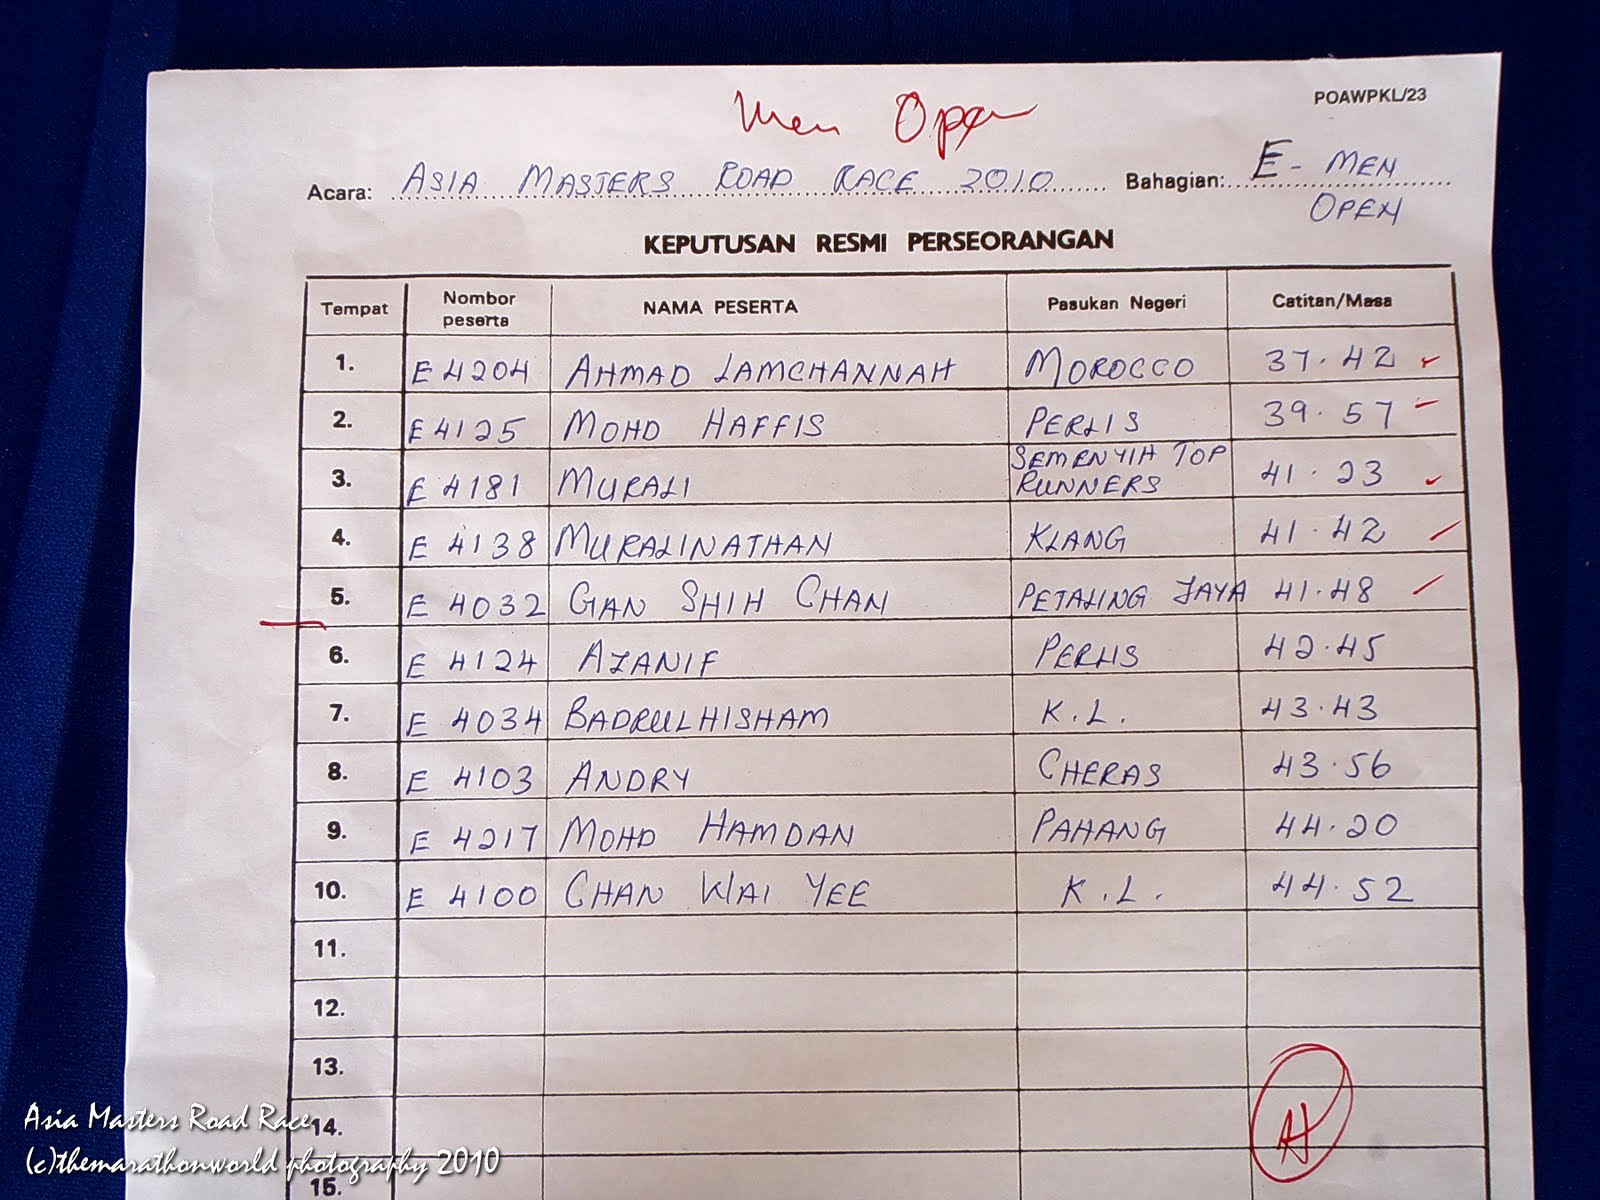 Men Open
POAWPKL/23
Acara: ASIA MASTERS ROAD RACE 2010 Bahagian: E - MEN
OPEN
KEPUTUSAN RESMI PERSEORANGAN
Tempat Nombor peserta NAMA PESERTA Pasukan Negeri Catitan/Masa
1. E 4204 AHMAD LAMCHANNAH MOROCCO 37.42
2. E 4125 MOHD HAFFIS PERLIS 39.57
3. E 4181 MURALI SEMENYIH TOP RUNNERS 41.23
4. E 4138 MURALINATHAN KLANG 41.42
5. E 4032 GAN SHIH CHAN PETALING JAYA 41.48
6. E 4124 AZANIF PERLIS 42.45
7. E 4034 BADRULHISHAM K.L. 43.43
8. E 4103 ANDRY CHERAS 43.56
9. E 4217 MOHD HAMDAN PAHANG 44.20
10. E 4100 CHAN WAI YEE K.L. 44.52
11.
12.
13.
14.
15.
Asia Masters Road Race
(c)themarathonworld photography 2010